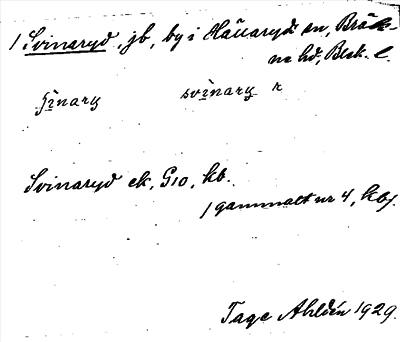 / Svinaryd, jb, by i Hällaryds sn, Bräk-
ne hd, Blek. l.
svinary r
Svinaryd ek, G10, kb.
/ gammalt nr 4, kbj.
Tage Ahldén 1929.